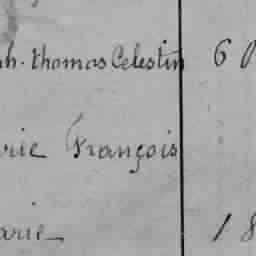 ph. thomas Celestin 6
rie François
arie 18